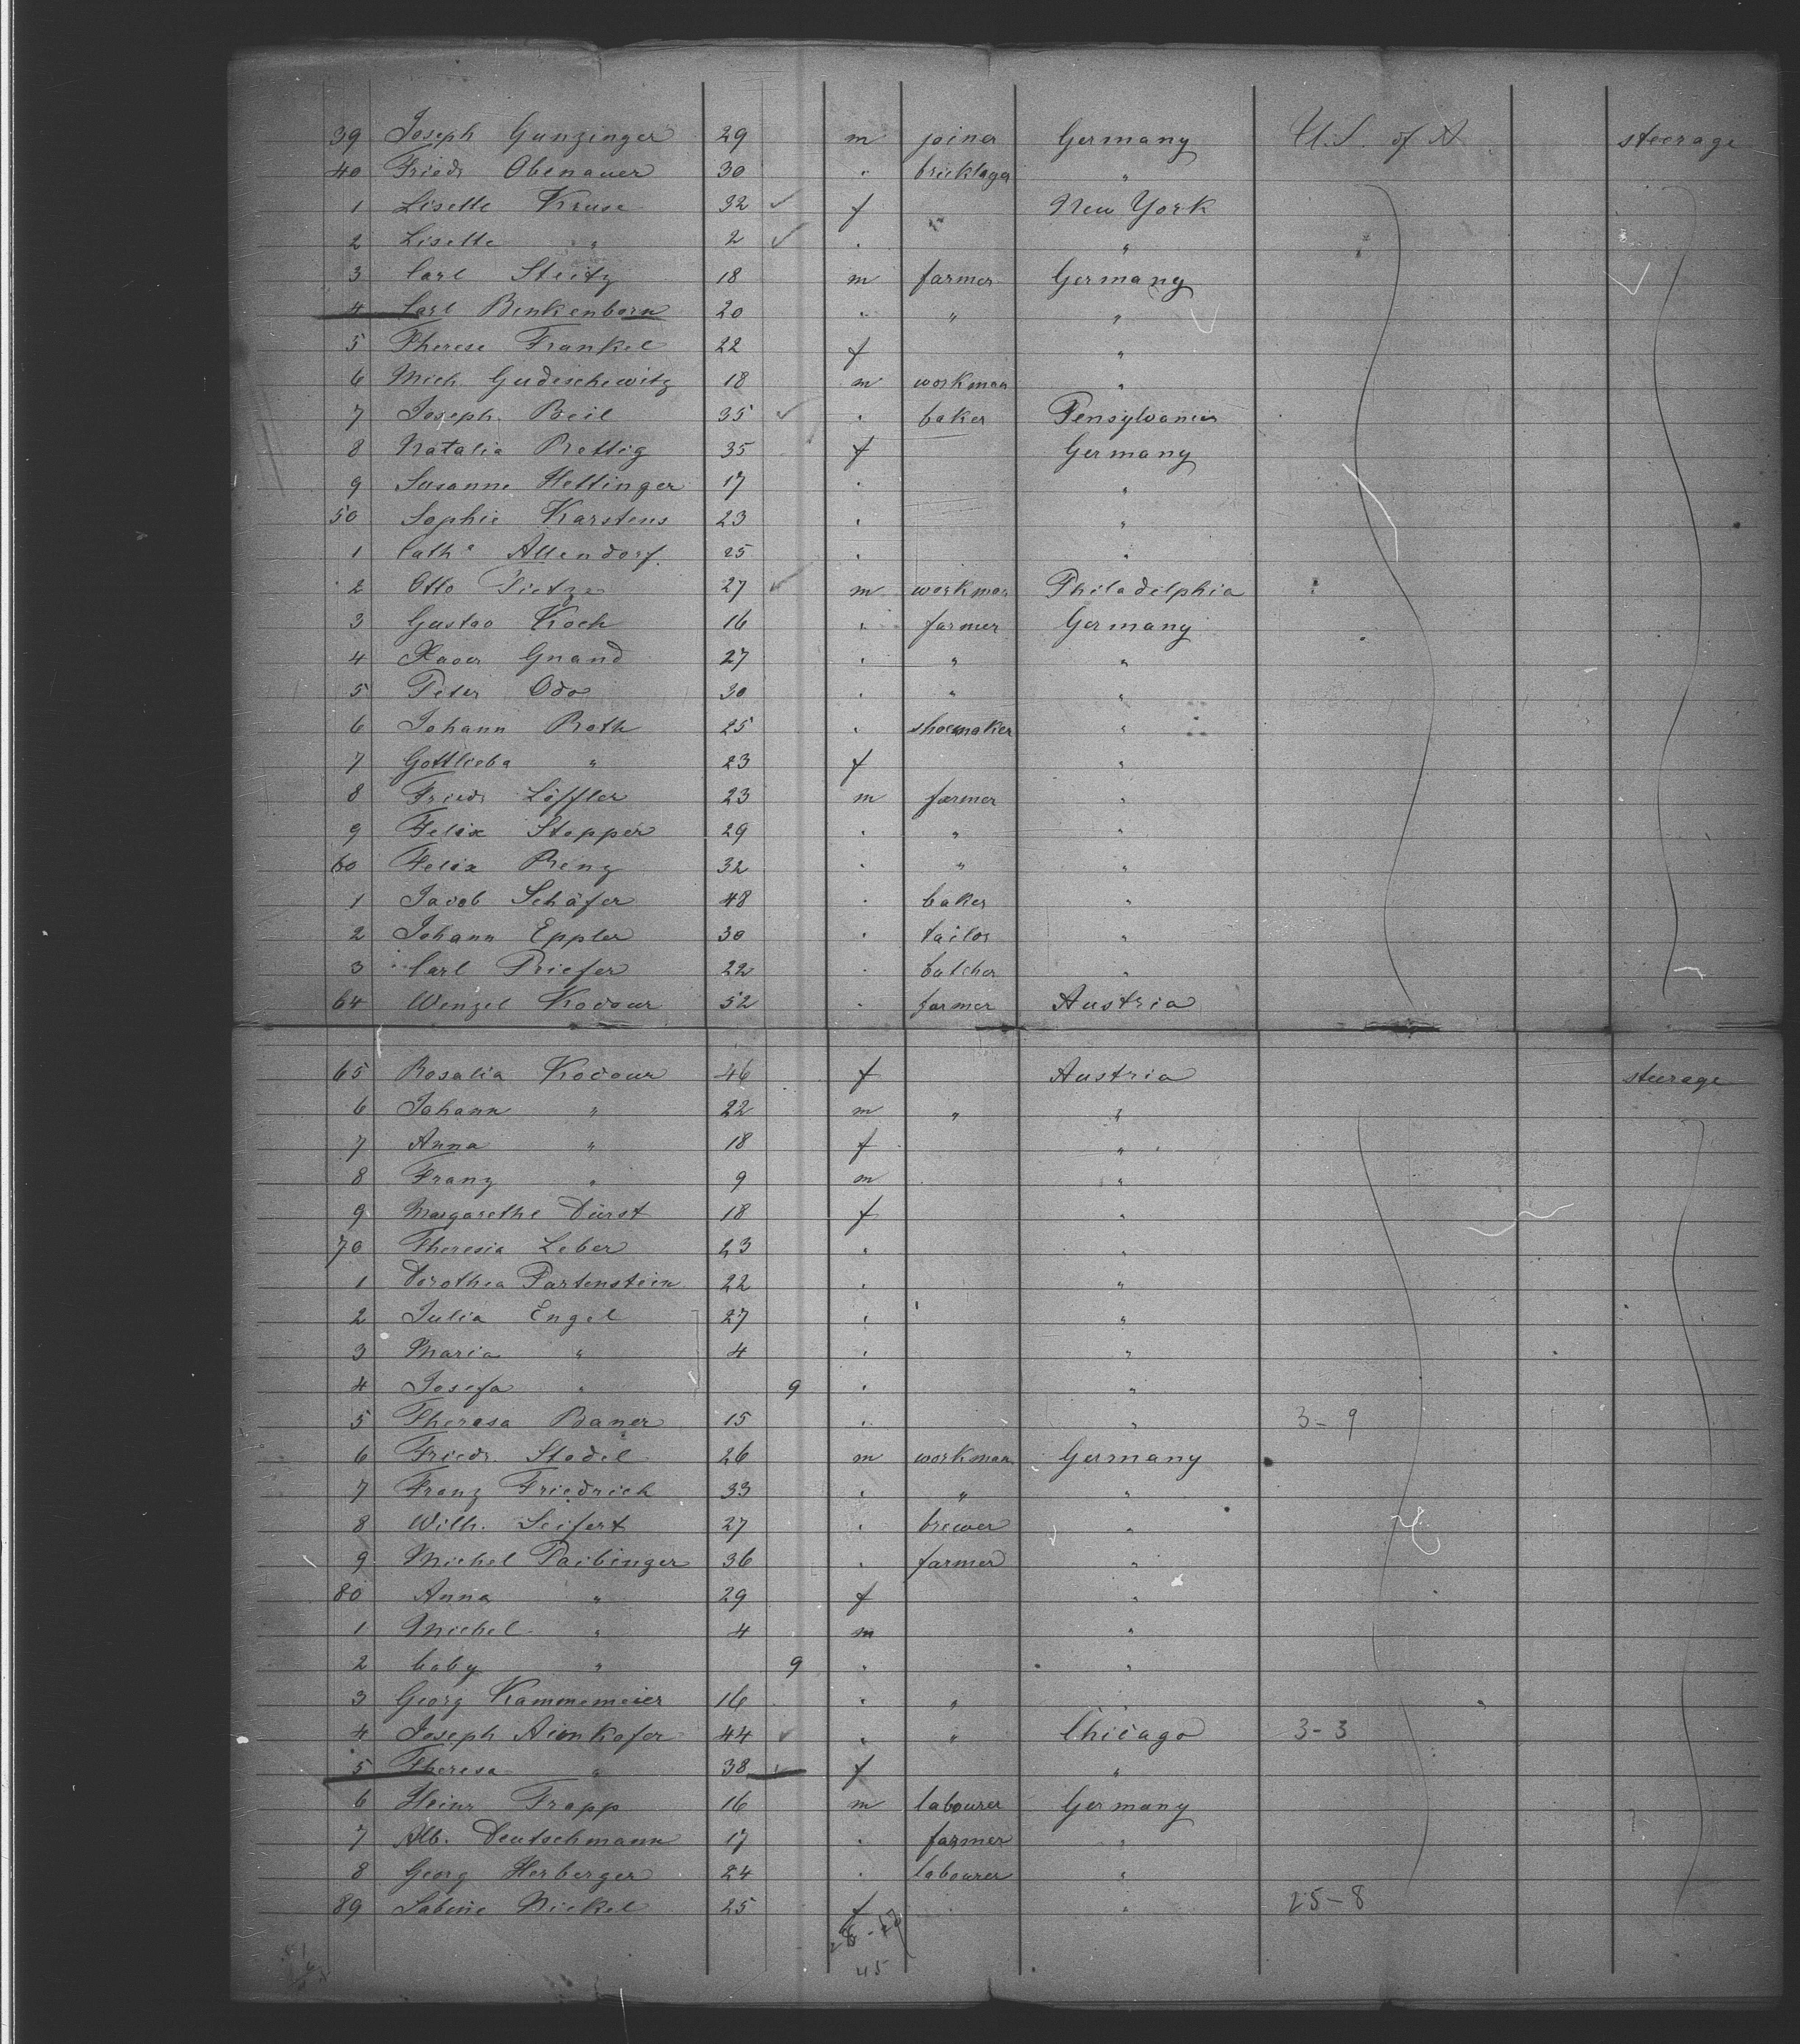 39 Joseph Gunzinger 29 m joiner Germany U.S. of A steerage
40 Friedr Obenauer 30 " bricklayer "
1 Lisette Kruse 32 ✓ f New York
2 Lisette " 2 ✓ " "
3 Carl Steitz 18 m farmer Germany
4 Carl Benkenborn 20 " " "
5 Therese Frankel 22 f "
6 Mich. Gudischewitz 18 m workman "
7 Joseph Beil 35 ✓ " baker Pensylvania
8 Natalia Rettig 35 f Germany
9 Susanne Hettinger 17 " "
50 Sophie Karstens 23 " "
1 Cath^e Allendorf 25 " "
2 Otto Tietze 27 ✓ m workman Philadelphia
3 Gustav Koch 16 " farmer Germany
4 Xaver Gnand 27 " " "
5 Peter Odo 30 " " "
6 Johann Roth 25 " shoemaker "
7 Gottlieba " 23 f "
8 Friedr Löffler 23 m farmer "
9 Felix Stopper 29 " " "
60 Felix Reng 32 " " "
1 Jacob Schäfer 48 " baker "
2 Johann Eppler 30 " tailor "
3 Carl Priefer 22 " butcher "
64 Wenzel Kovour 52 " farmer Austria
65 Rosalia Kovour 46 f Austria steerage
6 Johann " 22 m " "
7 Anna " 18 f "
8 Franz " 9 m "
9 Margarethe Dürst 18 f "
70 Theresia Leber 23 " "
1 Dorothea Partenstein 22 " "
2 Julia Engel 27 " "
3 Maria " 4 " "
4 Josefa " 9 " "
5 Therasa Baner 15 " " 3-9
6 Friedr. Stodel 26 m workman Germany
7 Franz Friedrich 33 " " "
8 Wilh. Seifert 27 " brewer "
9 Michel Paibinger 36 " farmer "
80 Anna " 29 f "
1 Michel " 4 m "
2 baby " 9 " "
3 Georg Kammemeier 16 " " "
4 Joseph Aionkofer 44 ✓ " " Chicago 3-3
5 Theresa " 38 ✓ f "
6 Heinr Trapp 16 m labourer Germany
7 Alb. Deutschmann 17 " farmer "
8 Georg Herberger 24 " labourer "
89 Sabine Nickel 25 f " 25-8
45